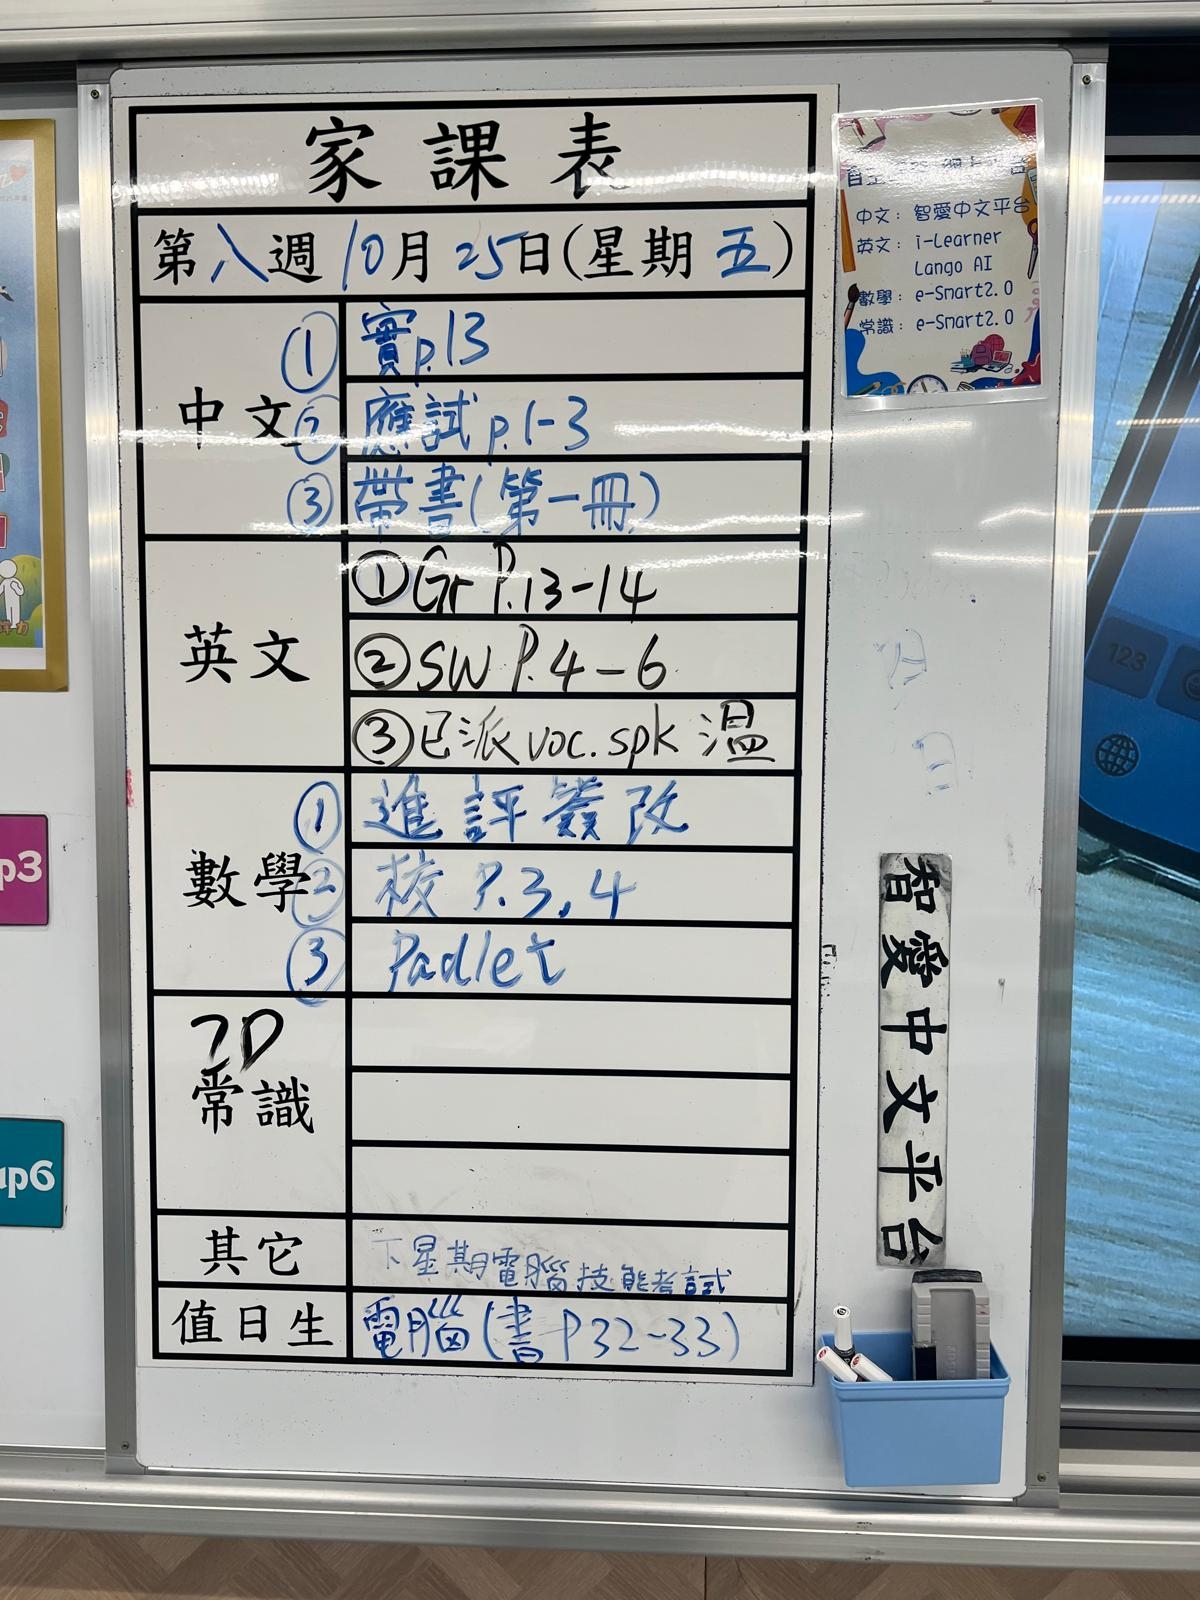 家課表
第八週10月25日(星期五)
中文
① 實p.13
② 應試p.1-3
③ 帶書(第一冊)
英文
①Gr P.13-14
②SW P.4-6
③已派voc. spk 溫
數學
① 進評簽改
② 校 P.3,4
③ Padlet
常識
其它
下星期電腦技能考試
值日生
電腦(書P32-33)
中文：智愛中文平台
英文：i-Learner
Lango AI
數學：e-Smart2.0
常識：e-Smart2.0
智愛中文平台
123
p3
up6